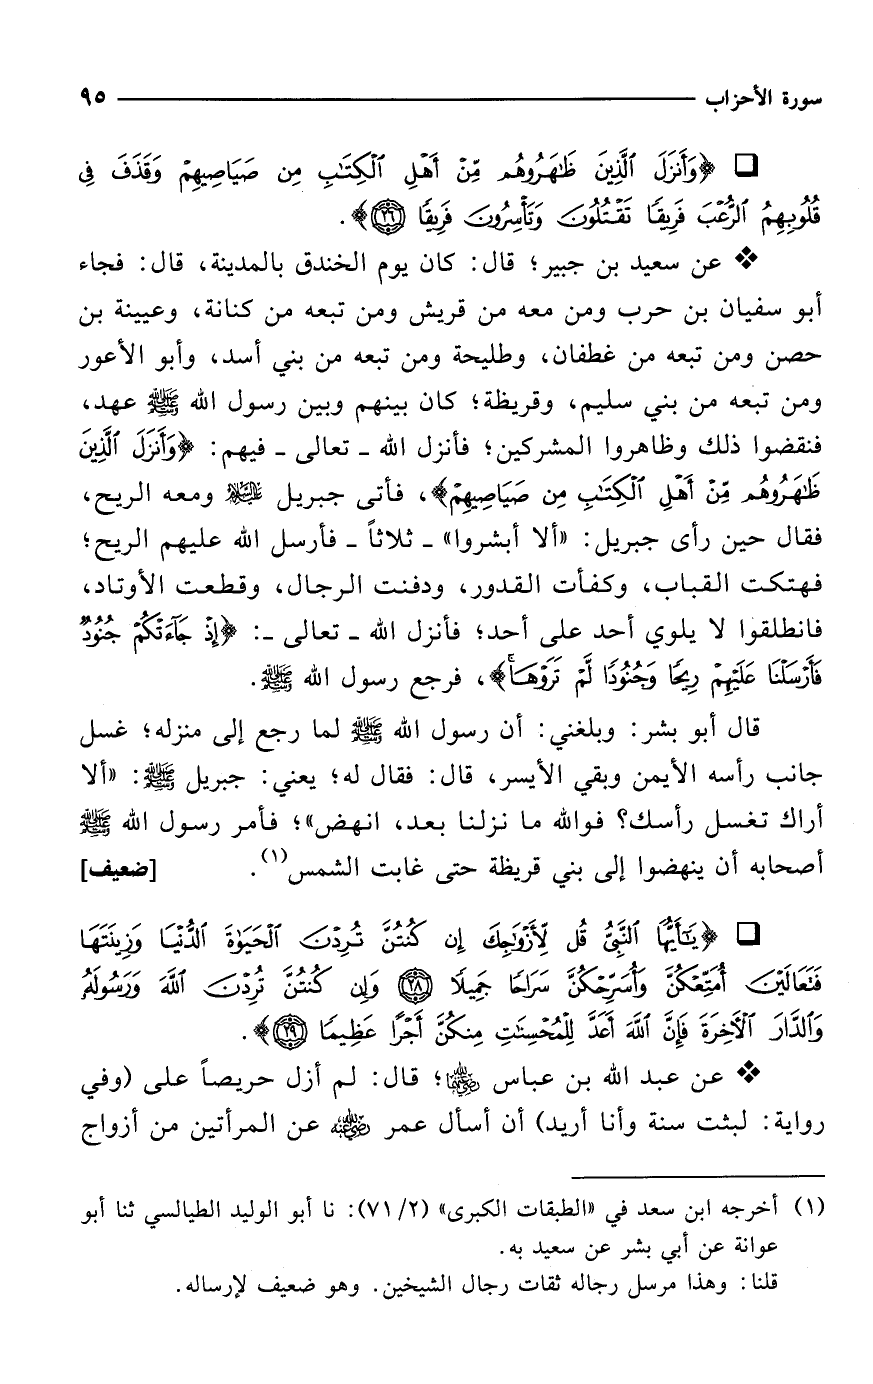 سورة الأحزاب ٩٥
❑ ﴿وَأَنزَلَ ٱلَّذِينَ ظَٰهَرُوهُم مِّنْ أَهْلِ ٱلْكِتَٰبِ مِن صَيَاصِيهِمْ وَقَذَفَ فِى
قُلُوبِهِمُ ٱلرُّعْبَ فَرِيقًا تَقْتُلُونَ وَتَأْسِرُونَ فَرِيقًا ۝٢٦﴾.
❖ عن سعيد بن جبير؛ قال: كان يوم الخندق بالمدينة، قال: فجاء
أبو سفيان بن حرب ومن معه من قريش ومن تبعه من كنانة، وعيينة بن
حصن ومن تبعه من غطفان، وطليحة ومن تبعه من بني أسد، وأبو الأعور
ومن تبعه من بني سليم، وقريظة؛ كان بينهم وبين رسول الله ﷺ عهد،
فنقضوا ذلك وظاهروا المشركين؛ فأنزل الله ـ تعالى ـ فيهم: ﴿وَأَنزَلَ ٱلَّذِينَ
ظَٰهَرُوهُم مِّنْ أَهْلِ ٱلْكِتَٰبِ مِن صَيَاصِيهِمْ﴾، فأتى جبريل عليه السلام ومعه الريح،
فقال حين رأى جبريل: «ألا أبشروا» ـ ثلاثاً ـ فأرسل الله عليهم الريح؛
فهتكت القباب، وكفأت القدور، ودفنت الرجال، وقطعت الأوتاد،
فانطلقوا لا يلوي أحد على أحد؛ فأنزل الله ـ تعالى ـ: ﴿إِذْ جَآءَتْكُمْ جُنُودٌ
فَأَرْسَلْنَا عَلَيْهِمْ رِيحًا وَجُنُودًا لَّمْ تَرَوْهَا ۚ﴾، فرجع رسول الله ﷺ.
قال أبو بشر: وبلغني: أن رسول الله ﷺ لما رجع إلى منزله؛ غسل
جانب رأسه الأيمن وبقي الأيسر، قال: فقال له؛ يعني: جبريل ﷺ: «ألا
أراك تغسل رأسك؟ فوالله ما نزلنا بعد، انهض»؛ فأمر رسول الله ﷺ
أصحابه أن ينهضوا إلى بني قريظة حتى غابت الشمس(١). [ضعيف]
❑ ﴿يَٰٓأَيُّهَا ٱلنَّبِىُّ قُل لِّأَزْوَٰجِكَ إِن كُنتُنَّ تُرِدْنَ ٱلْحَيَوٰةَ ٱلدُّنْيَا وَزِينَتَهَا
فَتَعَالَيْنَ أُمَتِّعْكُنَّ وَأُسَرِّحْكُنَّ سَرَاحًا جَمِيلًا ۝٢٨ وَإِن كُنتُنَّ تُرِدْنَ ٱللَّهَ وَرَسُولَهُۥ
وَٱلدَّارَ ٱلْءَاخِرَةَ فَإِنَّ ٱللَّهَ أَعَدَّ لِلْمُحْسِنَٰتِ مِنكُنَّ أَجْرًا عَظِيمًا ۝٢٩﴾.
❖ عن عبد الله بن عباس رضي الله عنهما؛ قال: لم أزل حريصاً على (وفي
رواية: لبثت سنة وأنا أريد) أن أسأل عمر رضي الله عنه عن المرأتين من أزواج
(١) أخرجه ابن سعد في «الطبقات الكبرى» (٢/ ٧١): نا أبو الوليد الطيالسي ثنا أبو
عوانة عن أبي بشر عن سعيد به.
قلنا: وهذا مرسل رجاله ثقات رجال الشيخين. وهو ضعيف لإرساله.